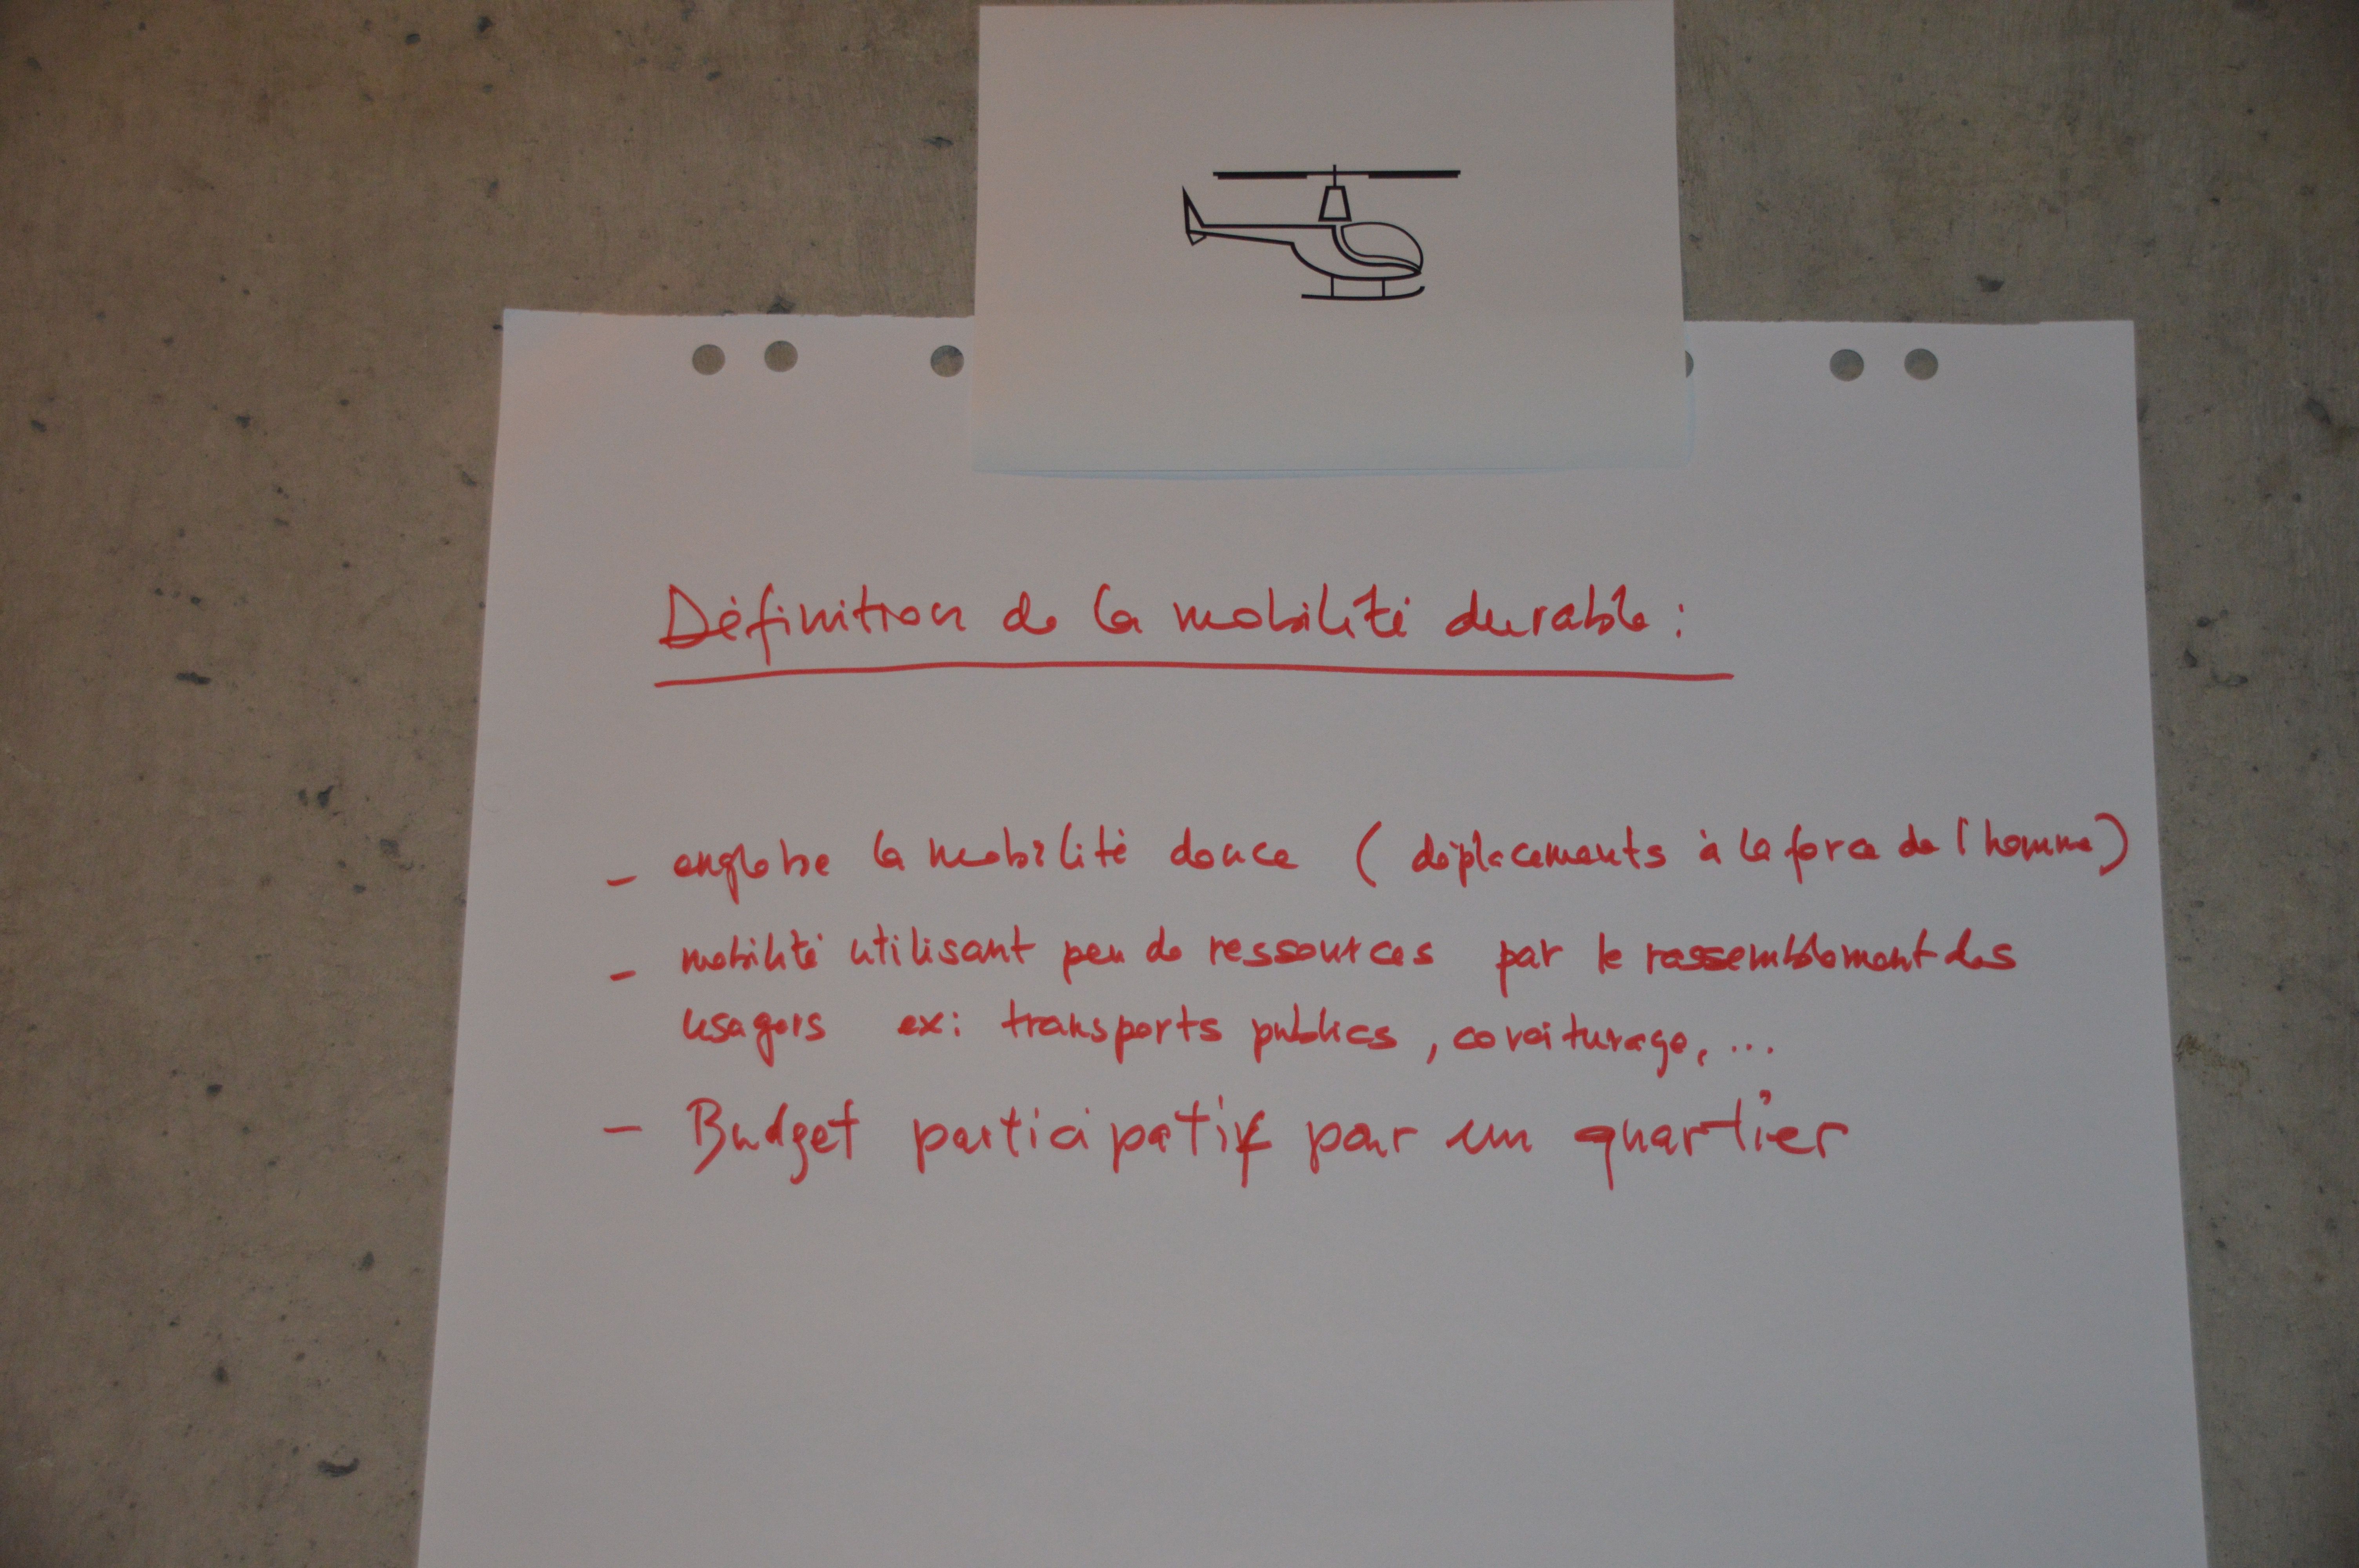 Définition de la mobilité durable :
- englobe la mobilité douce ( déplacements à la force de l'homme)
- mobilité utilisant peu de ressources par le rassemblement des
usagers ex: transports publics, covoiturage, ...
- Budget participatif pour un quartier